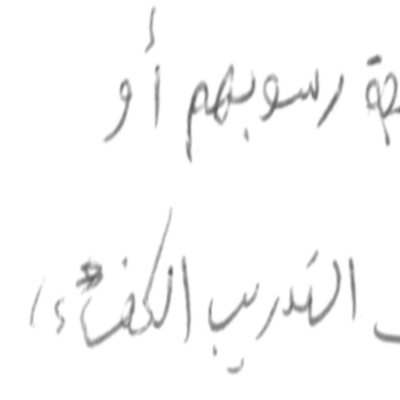 رسوبهم أو
التدريب الكفء